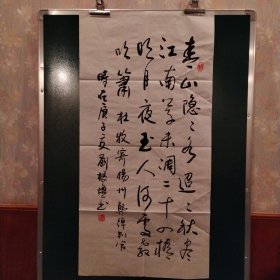 青山隐々水迢々秋尽
江南草未凋二十四橋
明月夜玉人何處教
吹簫 杜牧寄揚州韓绰判官
時在庚子夏劉根书